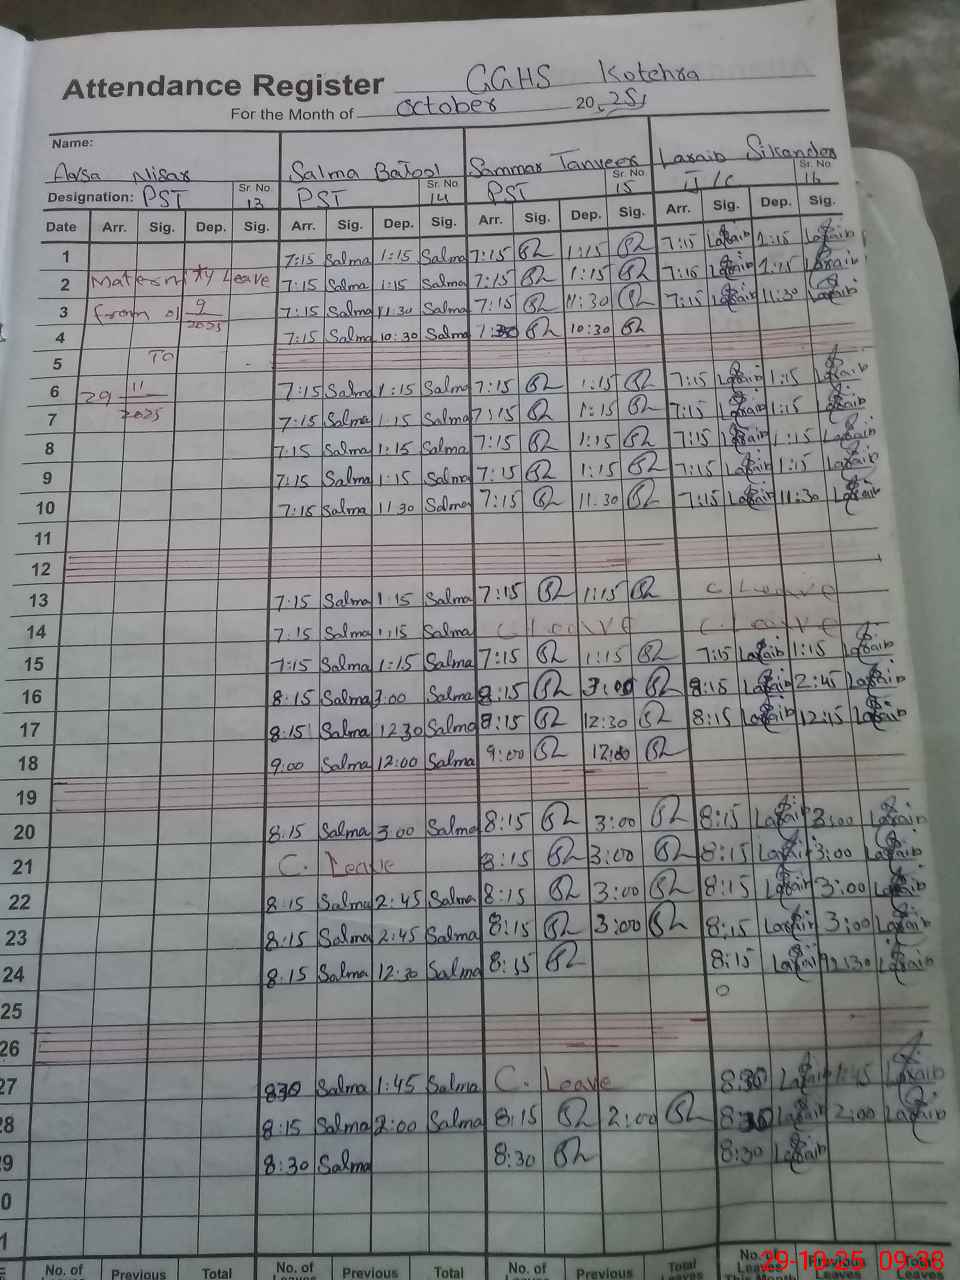 Attendance Register GGHS Kotehra
For the Month of October 2025
Name:
Aqsa Nisar Salma Batool Sammar Tanveer Laraib Sikander
Designation: PST Sr. No 13 PST Sr. No 14 PST Sr. No 15 Sr. No 16
Date Arr. Sig. Dep. Sig. Arr. Sig. Dep. Sig. Arr. Sig. Dep. Sig. Arr. Sig. Dep. Sig.
1 7:15 Salma 1:15 Salma 7:15 1:15 7:15 Laraib 1:15 Laraib
2 Maternity Leave 7:15 Salma 1:15 Salma 7:15 1:15 7:15 Laraib 1:15 Laraib
3 from 01 9/2025 7:15 Salma 11:30 Salma 7:15 11:30 7:15 Laraib 11:30 Laraib
4 7:15 Salma 10:30 Salma 7:30 10:30
5 TO
6 29 11/2025 7:15 Salma 1:15 Salma 7:15 1:15 7:15 Laraib 1:15 Laraib
7 7:15 Salma 1:15 Salma 7:15 1:15 7:15 Laraib 1:15 Laraib
8 7:15 Salma 1:15 Salma 7:15 1:15 7:15 Laraib 1:15 Laraib
9 7:15 Salma 1:15 Salma 7:15 1:15 7:15 Laraib 1:15 Laraib
10 7:15 Salma 11 30 Salma 7:15 11.30 7:15 Laraib 11:30 Laraib
11
12
13 7:15 Salma 1:15 Salma 7:15 1:15 C Leave
14 7:15 Salma 1:15 Salma C Leave C. Leave
15 7:15 Salma 1:15 Salma 7:15 1:15 7:15 Laraib 1:15 Laraib
16 8:15 Salma 3:00 Salma 8:15 3:00 8:15 Laraib 2:45 Laraib
17 8:15 Salma 12 30 Salma 8:15 12:30 8:15 Laraib 12:15 Laraib
18 9:00 Salma 12:00 Salma 9:00 12:00
19
20 8:15 Salma 3:00 Salma 8:15 3:00 8:15 Laraib 3:00 Laraib
21 C. Leave 8:15 3:00 8:15 Laraib 3:00 Laraib
22 8:15 Salma 2:45 Salma 8:15 3:00 8:15 Laraib 3:00 Laraib
23 8:15 Salma 2:45 Salma 8:15 3:00 8:15 Laraib 3:00 Laraib
24 8:15 Salma 12:30 Salma 8:15 8:15 Laraib 12:30 Laraib
25
26
27 830 Salma 1:45 Salma C. Leave 8:30 Laraib 1:45 Laraib
28 8:15 Salma 2:00 Salma 8:15 2:00 8:30 Laraib 2:00 Laraib
29 8:30 Salma 8:30 8:30 Laraib
0
1
No. of Previous Total No. of Leaves Previous Total No. of Leaves Previous Leaves Total Leaves No. of Leaves This Month Previous Leaves Total Leaves
29-10-25 09:38